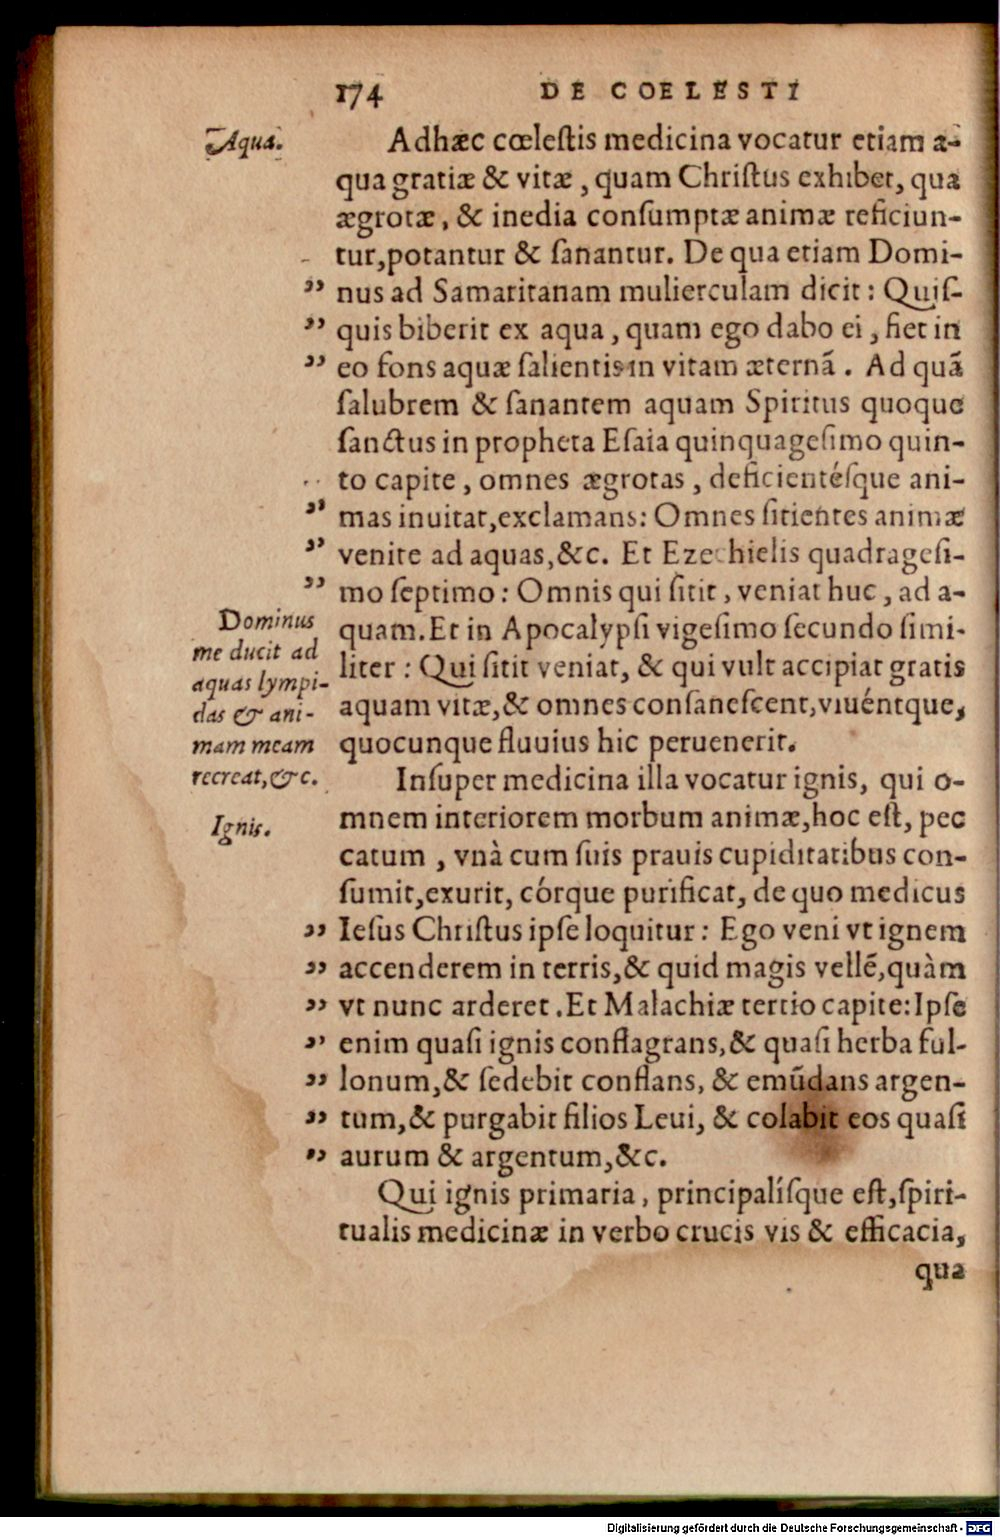 174 DE COELESTI
Aqua.
Adhæc cœleſtis medicina vocatur etiam a-
qua gratiæ & vitæ, quam Chriſtus exhibet, qua
ægrotæ, & inedia conſumptæ animæ reficiun-
tur, potantur & ſanantur. De qua etiam Domi-
" nus ad Samaritanam mulierculam dicit: Quiſ-
" quis biberit ex aqua, quam ego dabo ei, fiet in
" eo fons aquæ ſalientis in vitam æternã. Ad quã
ſalubrem & ſanantem aquam Spiritus quoque
ſanctus in propheta Eſaia quinquageſimo quin-
to capite, omnes ægrotas, deficientéſque ani-
" mas inuitat, exclamans: Omnes ſitientes animæ
" venite ad aquas, &c. Et Ezechielis quadrageſi-
" mo ſeptimo: Omnis qui ſitit, veniat huc, ad a-
quam. Et in Apocalypſi vigeſimo ſecundo ſimi-
liter: Qui ſitit veniat, & qui vult accipiat gratis
aquam vitæ, & omnes conſaneſcent, viuéntque,
quocunque fluuius hic peruenerit.
Dominus
me ducit ad
aquas lympi-
das & ani-
mam meam
recreat, &c.
Ignis.
Inſuper medicina illa vocatur ignis, qui o-
mnem interiorem morbum animæ, hoc eſt, pec
catum, vnà cum ſuis prauis cupiditatibus con-
ſumit, exurit, córque purificat, de quo medicus
" Ieſus Chriſtus ipſe loquitur: Ego veni vt ignem
" accenderem in terris, & quid magis vellẽ, quàm
" vt nunc arderet. Et Malachiæ tertio capite: Ipſe
" enim quaſi ignis conflagrans, & quaſi herba ful-
" lonum, & ſedebit conflans, & emũdans argen-
" tum, & purgabit filios Leui, & colabit eos quaſi
" aurum & argentum, &c.
Qui ignis primaria, principalíſque eſt, ſpiri-
tualis medicinæ in verbo crucis vis & efficacia,
qua
Digitalisierung gefördert durch die Deutsche Forschungsgemeinschaft - DFG